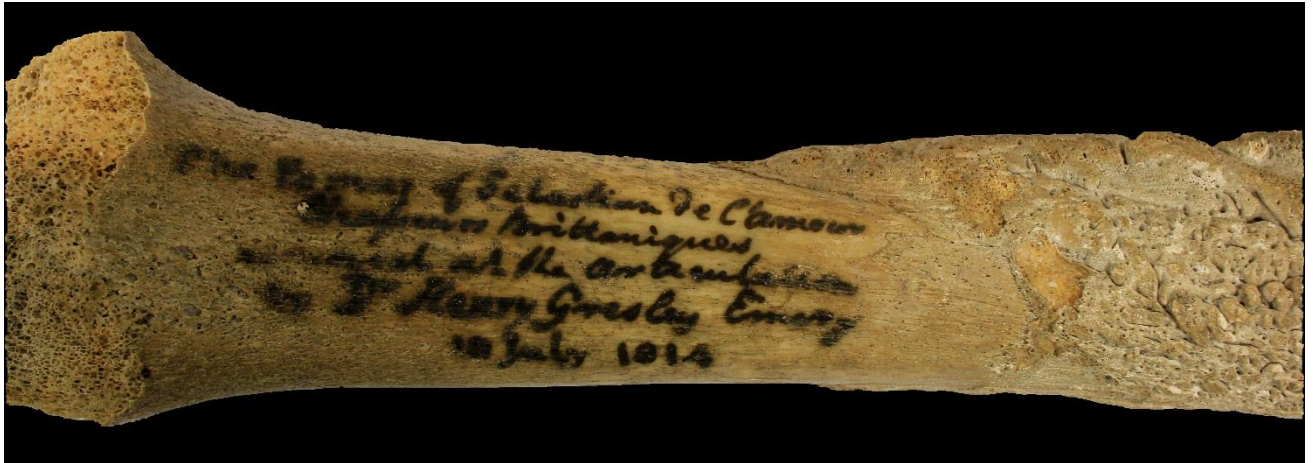 The of Sebastian De C'lamour
Chasseurs Brittaniques
at the articulation
by Dr Henry Gresley Emery
10 July 1814